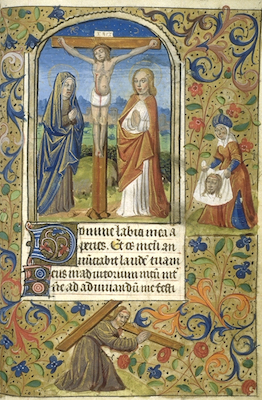 INRI
Domine labia mea a
peries. Et os meū an
nūciabit laudē tuam
Deus in adiutorium meū īte
de ad adiuuandū me festi